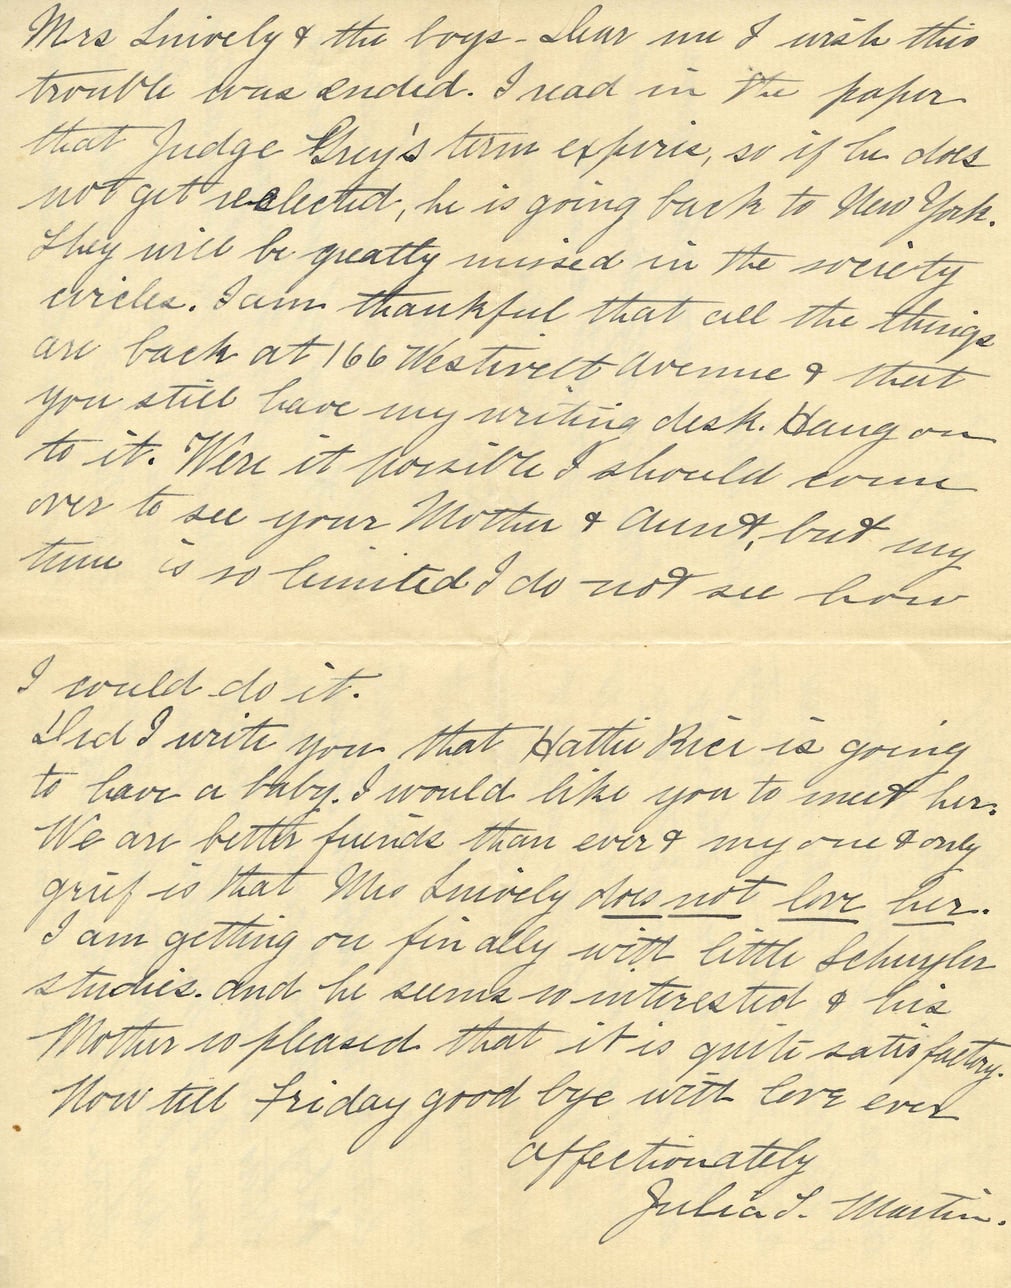 Mrs Snively & the boys - Dear me I wish this
trouble was ended. I read in the paper
that Judge Grey's term expires, so if he does
not get reelected, he is going back to New York.
They will be greatly missed in the society
circles. I am thankful that all the things
are back at 166 Westervelt Avenue & that
you still have my writing desk. Hang on
to it. Were it possible I should come
over to see your Mother & Aunt, but my
time is so limited I do not see how
I could do it.
Did I write you that Hattie Rice is going
to have a baby. I would like you to meet her.
We are better friends than ever & my one & only
grief is that Mrs Snively does not love her.
I am getting on finally with little Schuyler
studies. and he seems so interested & his
Mother so pleased that it is quite satisfactory.
Now till Friday good bye with love ever
affectionately
Julia S. Martin.